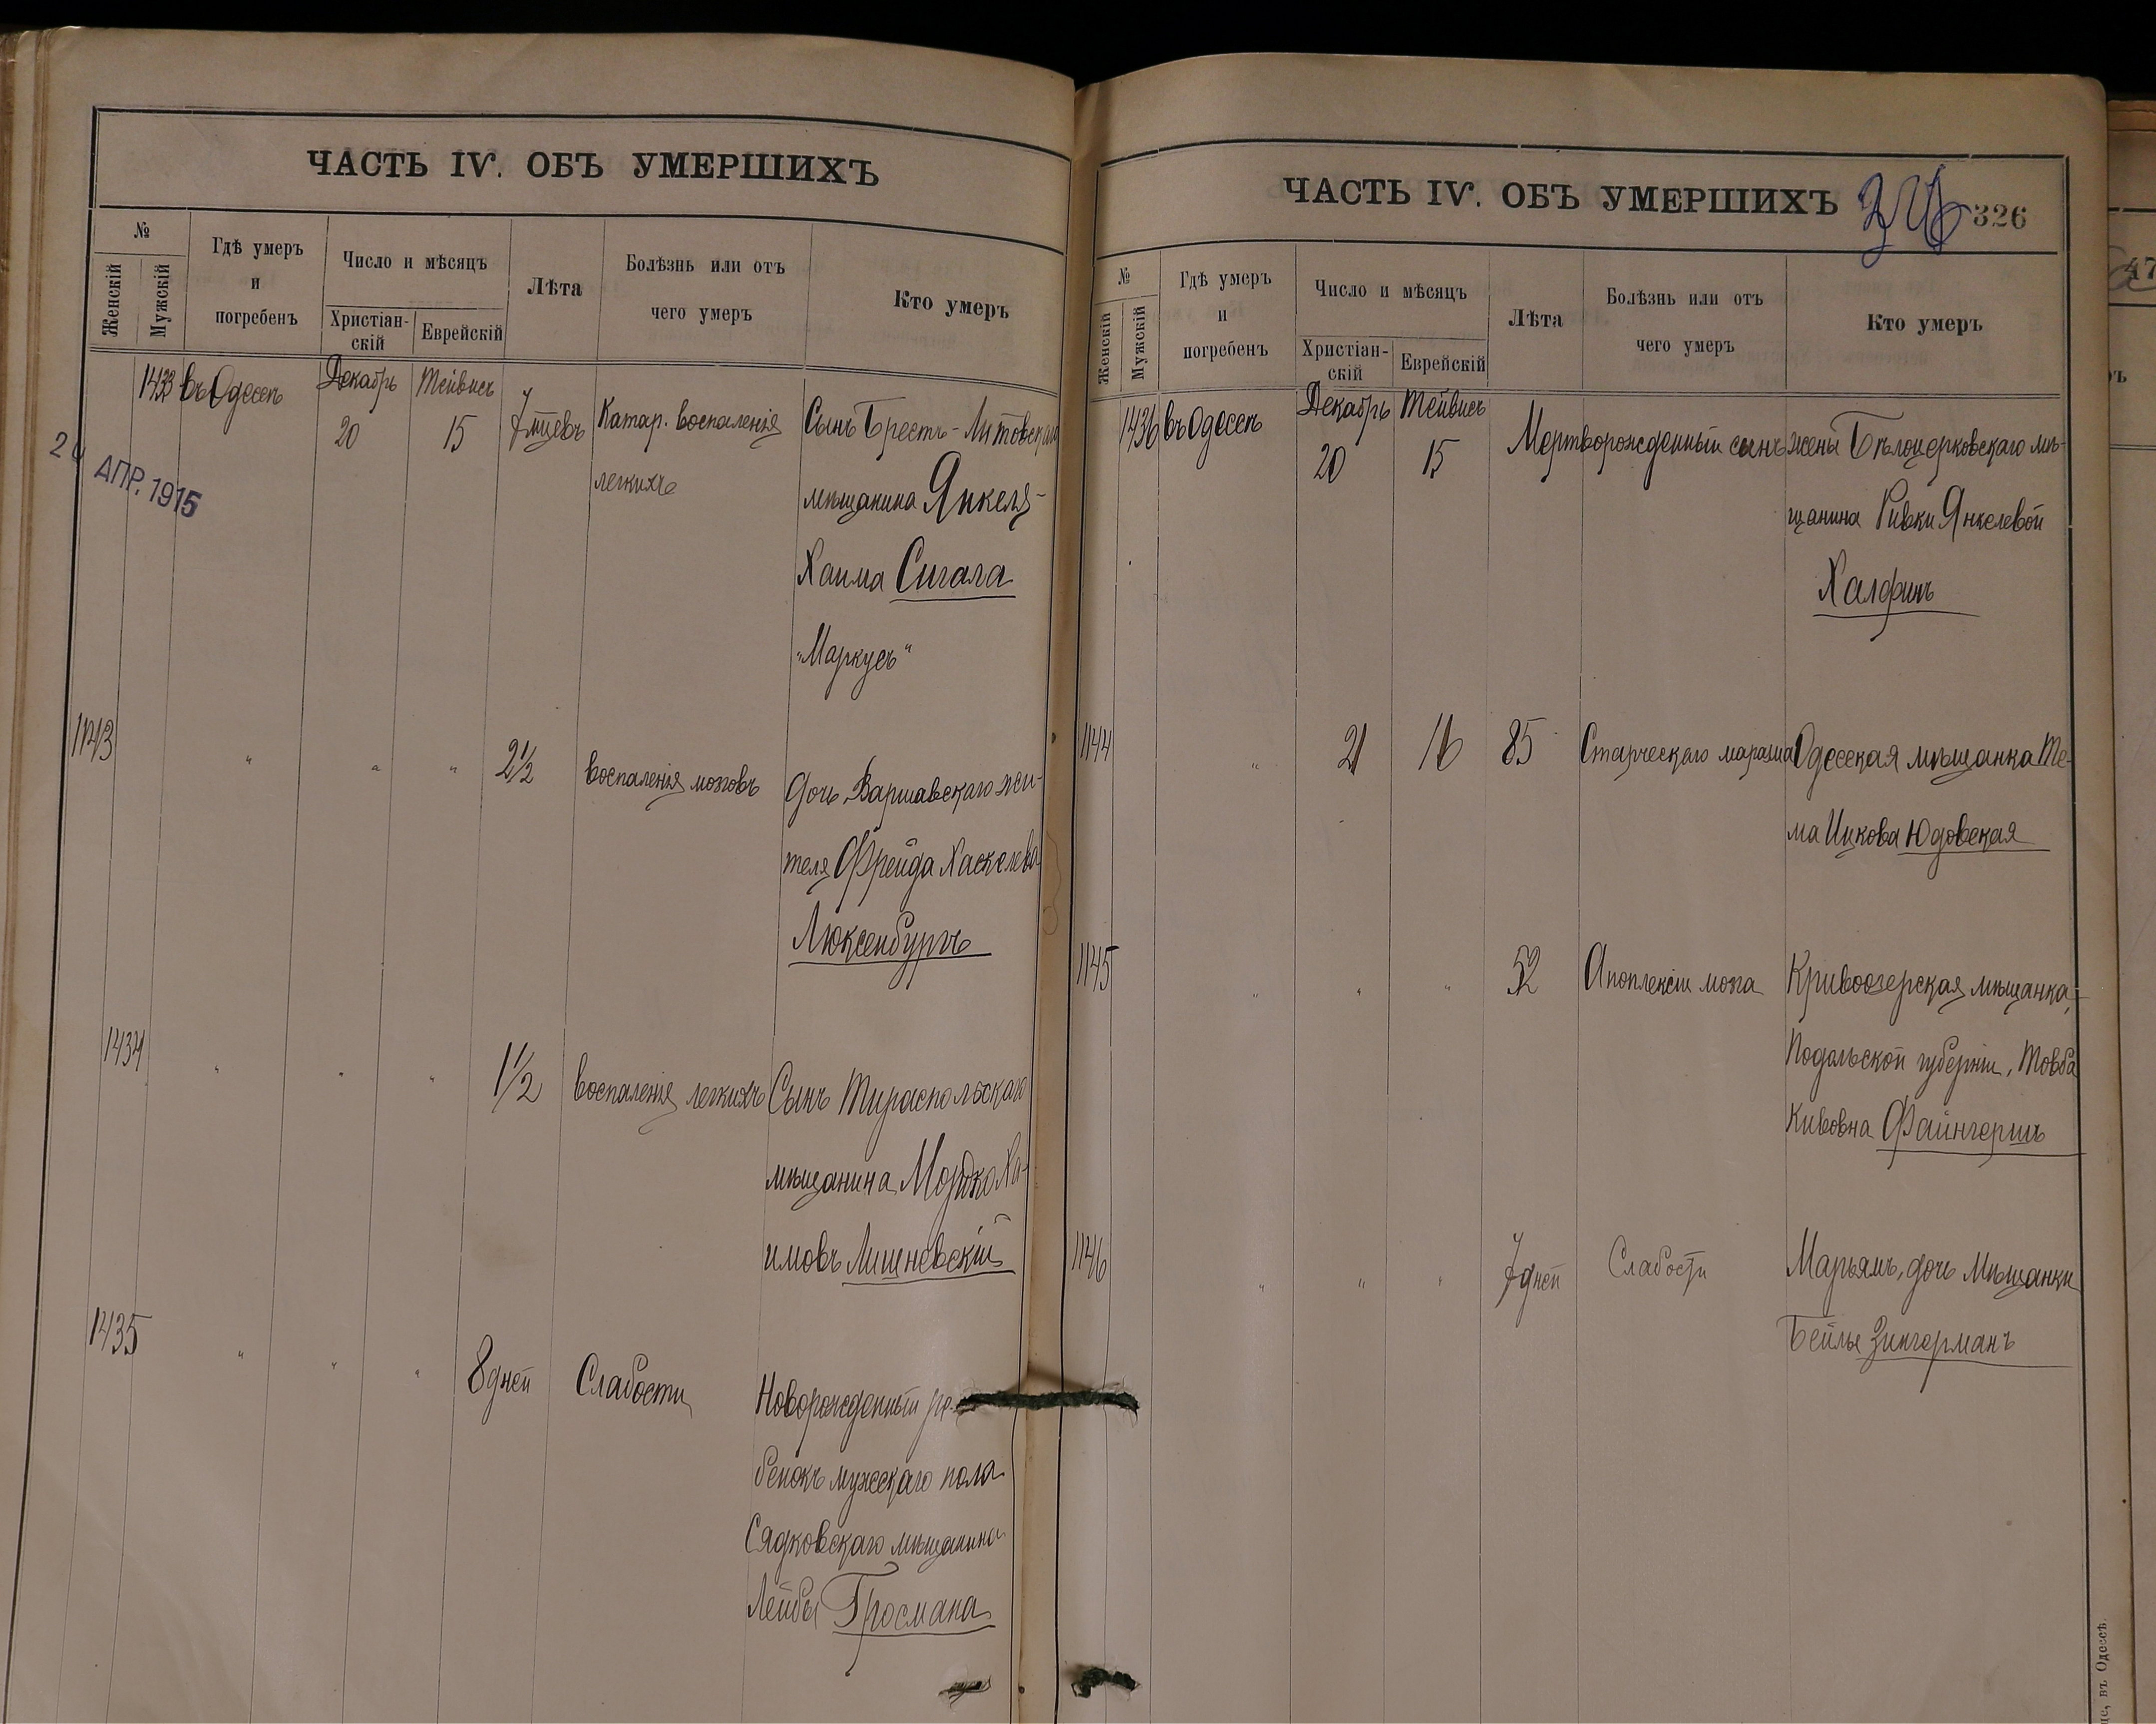 ЧАСТЬ IV. ОБЪ УМЕРШИХЪ
№
Женскій
Мужскій
Гдѣ умеръ
и
погребенъ
Число и мѣсяцъ
Христіан-
скій
Еврейскій
Лѣта
Болѣзнь или отъ
чего умеръ
Кто умеръ
1433 въ Одессѣ Декабрь 20 Тейвисъ 15 7 мцевъ Катар. воспаленія Сынъ Брестъ-Литовскаго
легкихъ мѣщанина Янкеля-
Хаима Сигала
"Маркусъ"
24 АПР. 1915
1143 " " " 2½ воспаленія мозговъ Дочь Варшавскаго жи-
теля Фрейда Хаскелева
Люксенбургъ
1434 " " " 1½ воспаленія легкихъ Сынъ Тираспольскаго
мѣщанина Мордко Ха-
имовъ Лишневскій
1435 " " " 8 дней Слабости Новорожденный ре-
бенокъ мужескаго пола
Сядковскаго мѣщанина
Лейбы Гросмана
ЧАСТЬ IV. ОБЪ УМЕРШИХЪ
326
326
№
Женскій
Мужскій
Гдѣ умеръ
и
погребенъ
Число и мѣсяцъ
Христіан-
скій
Еврейскій
Лѣта
Болѣзнь или отъ
чего умеръ
Кто умеръ
1436 въ Одессѣ Декабрь 20 Тейвисъ 15 Мертворожденный сынъ жены Бѣлоцерковскаго мѣ-
щанина Ривки Янкелевой
Халфинъ
1144 " 21 16 85 Старческаго маразма Одесская мѣщанка Те-
ма Ицкова Юдовская
1145 " " " 52 Апоплексіи мозга Кривоозерская мѣщанка,
Подольской губерніи, Товба
Кивовна Файнгершъ
1146 " " " 7 дней Слабости Марьямъ, дочь мѣщанки
Бейлы Зингерманъ
47
въ Одессѣ.